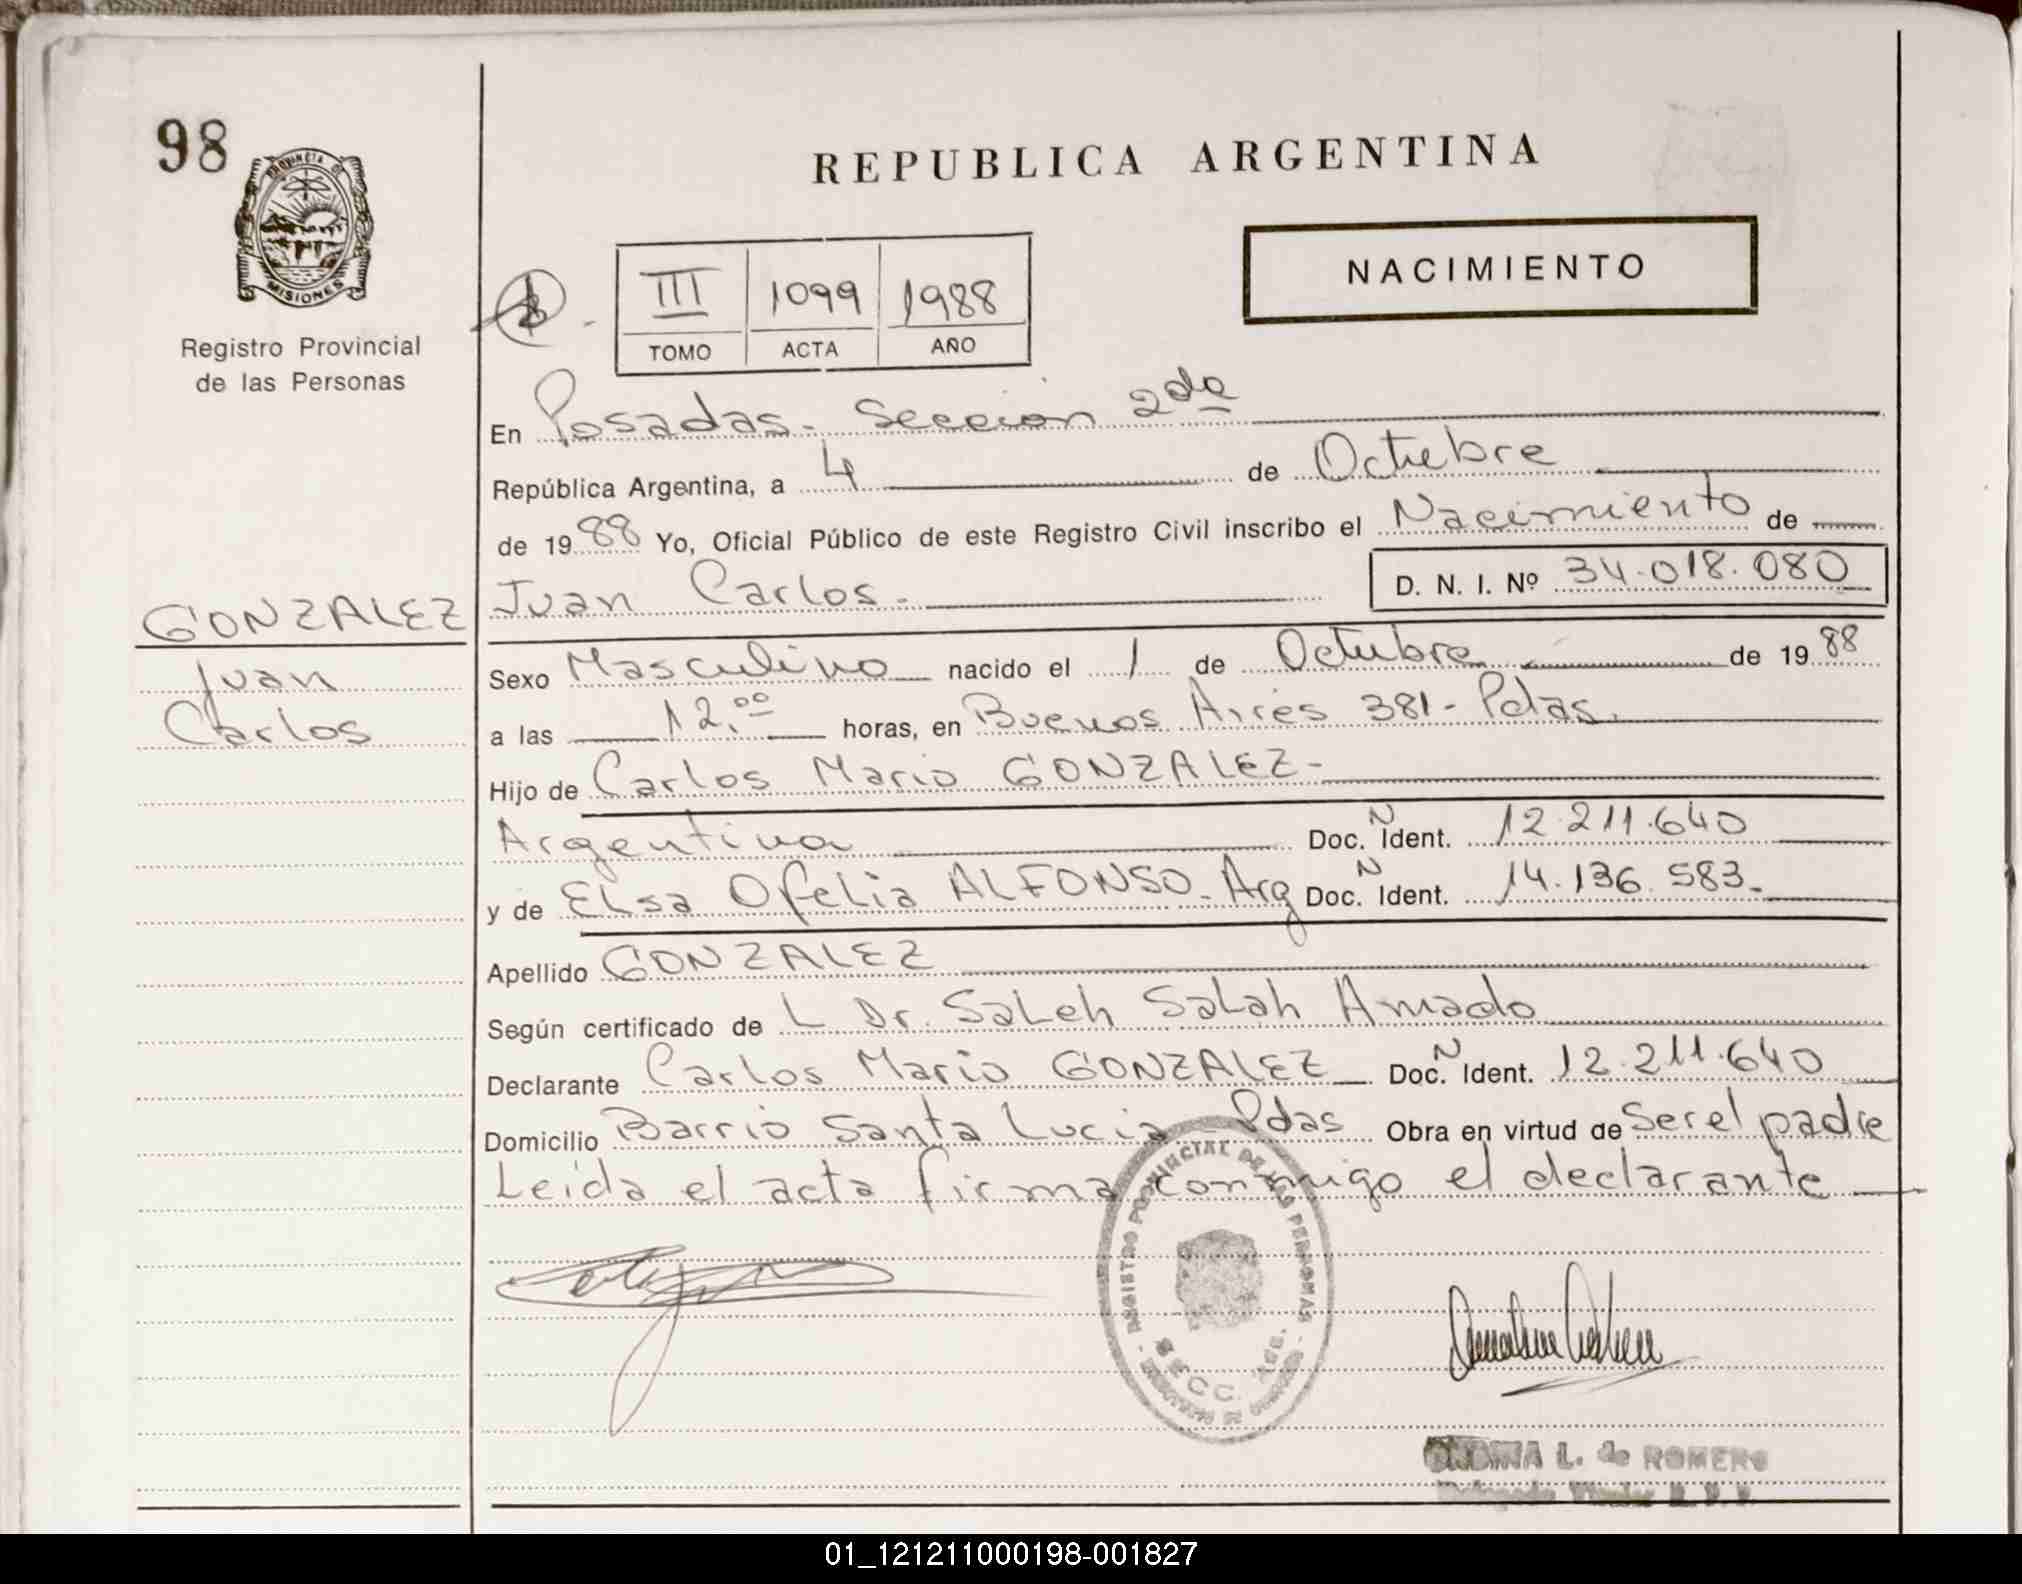 98
PROVINCIA DE
MISIONES
Registro Provincial
de las Personas
REPUBLICA ARGENTINA
NACIMIENTO
III 1099 1988
TOMO ACTA AÑO
En Posadas. Sección 2da
República Argentina, a 4 de Octubre
de 1988 Yo, Oficial Público de este Registro Civil inscribo el Nacimiento de
GONZALEZ
Juan
Carlos
Juan Carlos. D. N. I. Nº 34.018.080
Sexo Masculino nacido el 1 de Octubre de 1988
a las 12.00 horas, en Buenos Aires 381- Pdas.
Hijo de Carlos Mario GONZALEZ-
Argentina Doc. N Ident. 12.211.640
y de ELsa Ofelia ALFONSO. Arg Doc. N Ident. 14.136.583.
Apellido GONZALEZ
Según certificado de L Dr. SaLeh SaLah Amado
Declarante Carlos Mario GONZALEZ Doc. N Ident. 12.211.640
Domicilio Barrio Santa Lucia Pdas Obra en virtud de Ser el padre
Leída el acta firma conmigo el declarante
REGISTRO PROVINCIAL DE LAS PERSONAS
SECC.
ONDINA L. de ROMERO
01_121211000198-001827